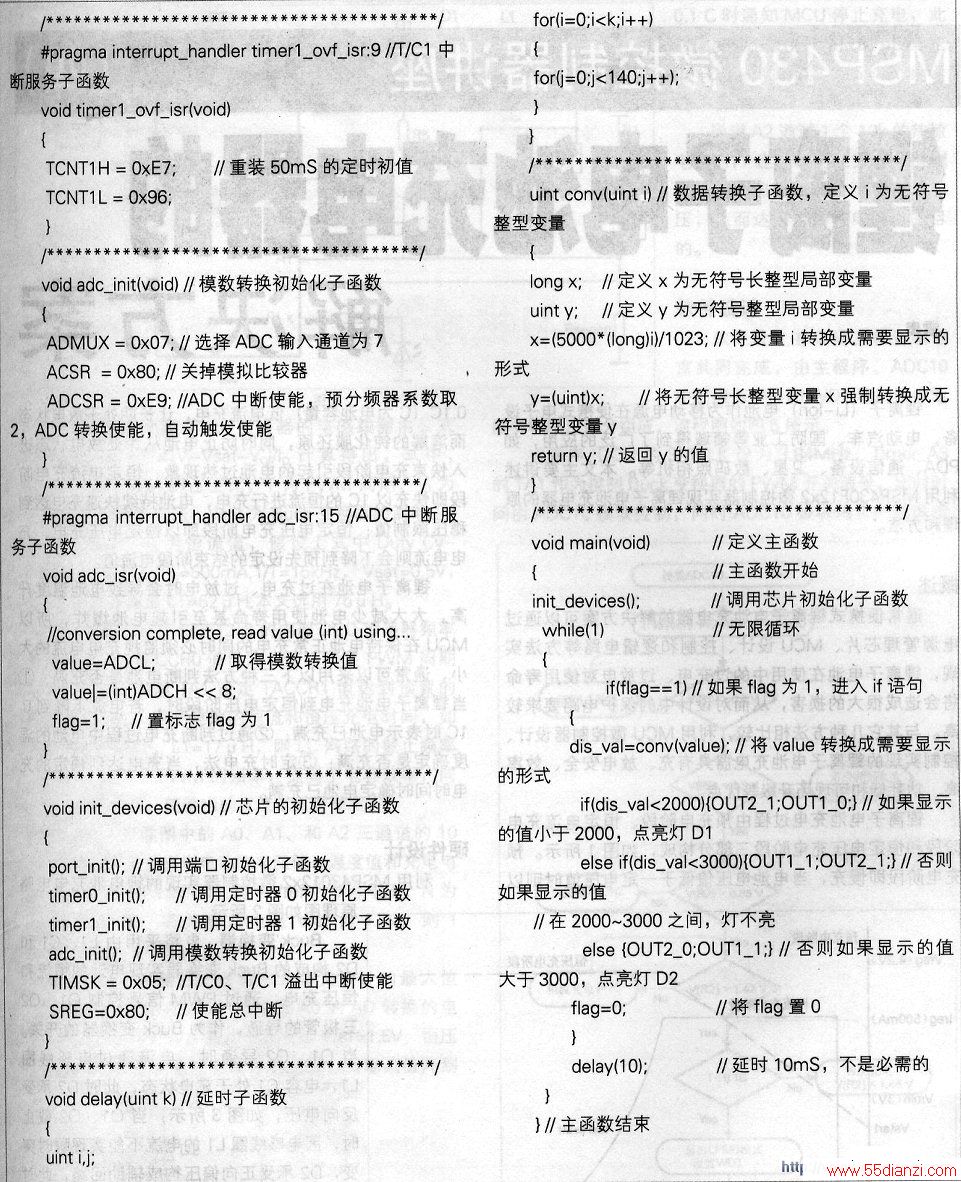 /****************************************/
#pragma interrupt_handler timer1_ovf_isr:9 //T/C1 中
断服务子函数
void timer1_ovf_isr(void)
{
TCNT1H = 0xE7; // 重装 50mS 的定时初值
TCNT1L = 0x96;
}
/**************************************/
void adc_init(void) // 模数转换初始化子函数
{
ADMUX = 0x07; // 选择 ADC 输入通道为 7
ACSR = 0x80; // 关掉模拟比较器
ADCSR = 0xE9; //ADC 中断使能，预分频器系数取
2，ADC 转换使能，自动触发使能
}
/**************************************/
#pragma interrupt_handler adc_isr:15 //ADC 中断服
务子函数
void adc_isr(void)
{
//conversion complete, read value (int) using...
value=ADCL; // 取得模数转换值
value|=(int)ADCH << 8;
flag=1; // 置标志 flag 为 1
}
/***************************************/
void init_devices(void) // 芯片的初始化子函数
{
port_init(); // 调用端口初始化子函数
timer0_init(); // 调用定时器 0 初始化子函数
timer1_init(); // 调用定时器 1 初始化子函数
adc_init(); // 调用模数转换初始化子函数
TIMSK = 0x05; //T/C0、T/C1 溢出中断使能
SREG=0x80; // 使能总中断
}
/***************************************/
void delay(uint k) // 延时子函数
{
uint i,j;
for(i=0;i<k;i++)
{
for(j=0;j<140;j++);
}
}
/*************************************/
uint conv(uint i) // 数据转换子函数，定义 i 为无符号
整型变量
{
long x; // 定义 x 为无符号长整型局部变量
uint y; // 定义 y 为无符号整型局部变量
x=(5000*(long)i)/1023; // 将变量 i 转换成需要显示的
形式
y=(uint)x; // 将无符号长整型变量 x 强制转换成无
符号整型变量 y
return y; // 返回 y 的值
}
/*************************************/
void main(void) // 定义主函数
{ // 主函数开始
init_devices(); // 调用芯片初始化子函数
while(1) // 无限循环
{
if(flag==1) // 如果 flag 为 1，进入 if 语句
{
dis_val=conv(value); // 将 value 转换成需要显示
的形式
if(dis_val<2000){OUT2_1;OUT1_0;} // 如果显示
的值小于 2000，点亮灯 D1
else if(dis_val<3000){OUT1_1;OUT2_1;} // 否则
如果显示的值
// 在 2000~3000 之间，灯不亮
else {OUT2_0;OUT1_1;} // 否则如果显示的值
大于 3000，点亮灯 D2
flag=0; // 将 flag 置 0
}
delay(10); // 延时 10mS，不是必需的
}
} // 主函数结束
www.55dianzi.com